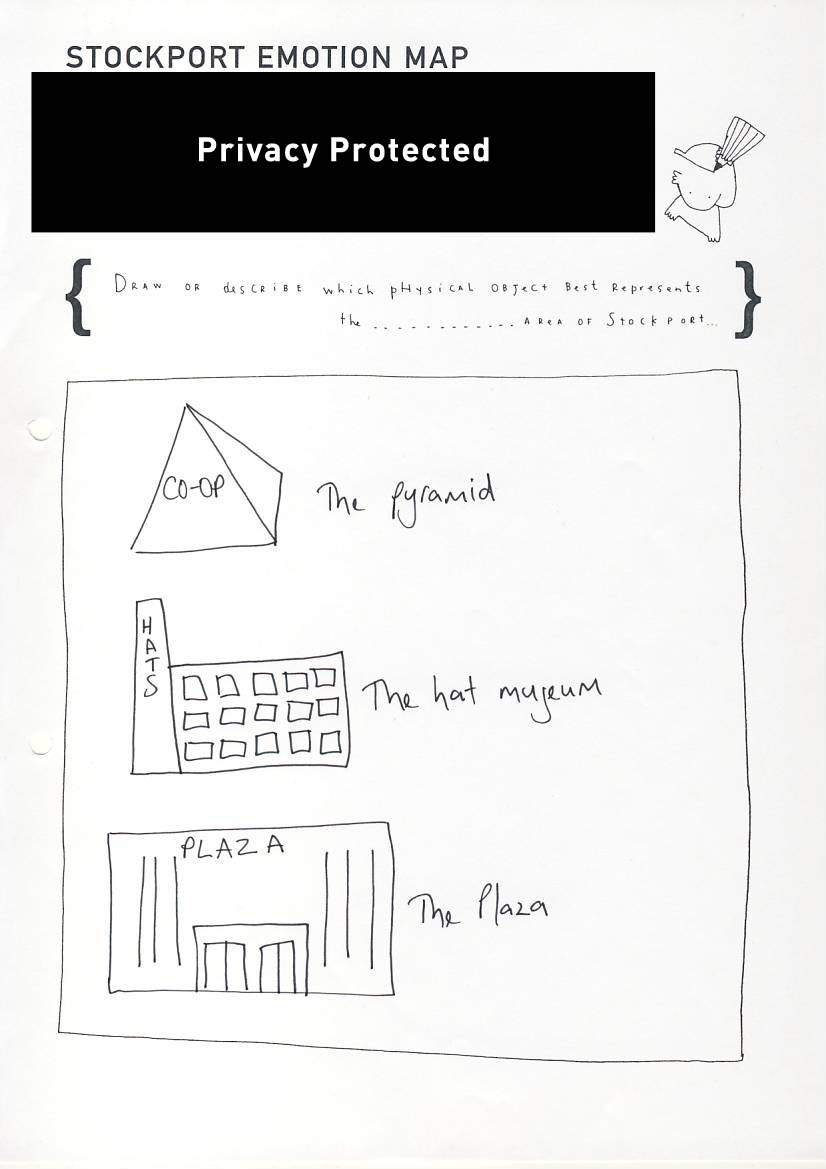 STOCKPORT EMOTION MAP
Privacy Protected
{ Draw or describe which physical object best represents
the ............. area of Stockport... }
CO-OP
The pyramid
HATS
The hat museum
PLAZA
The Plaza